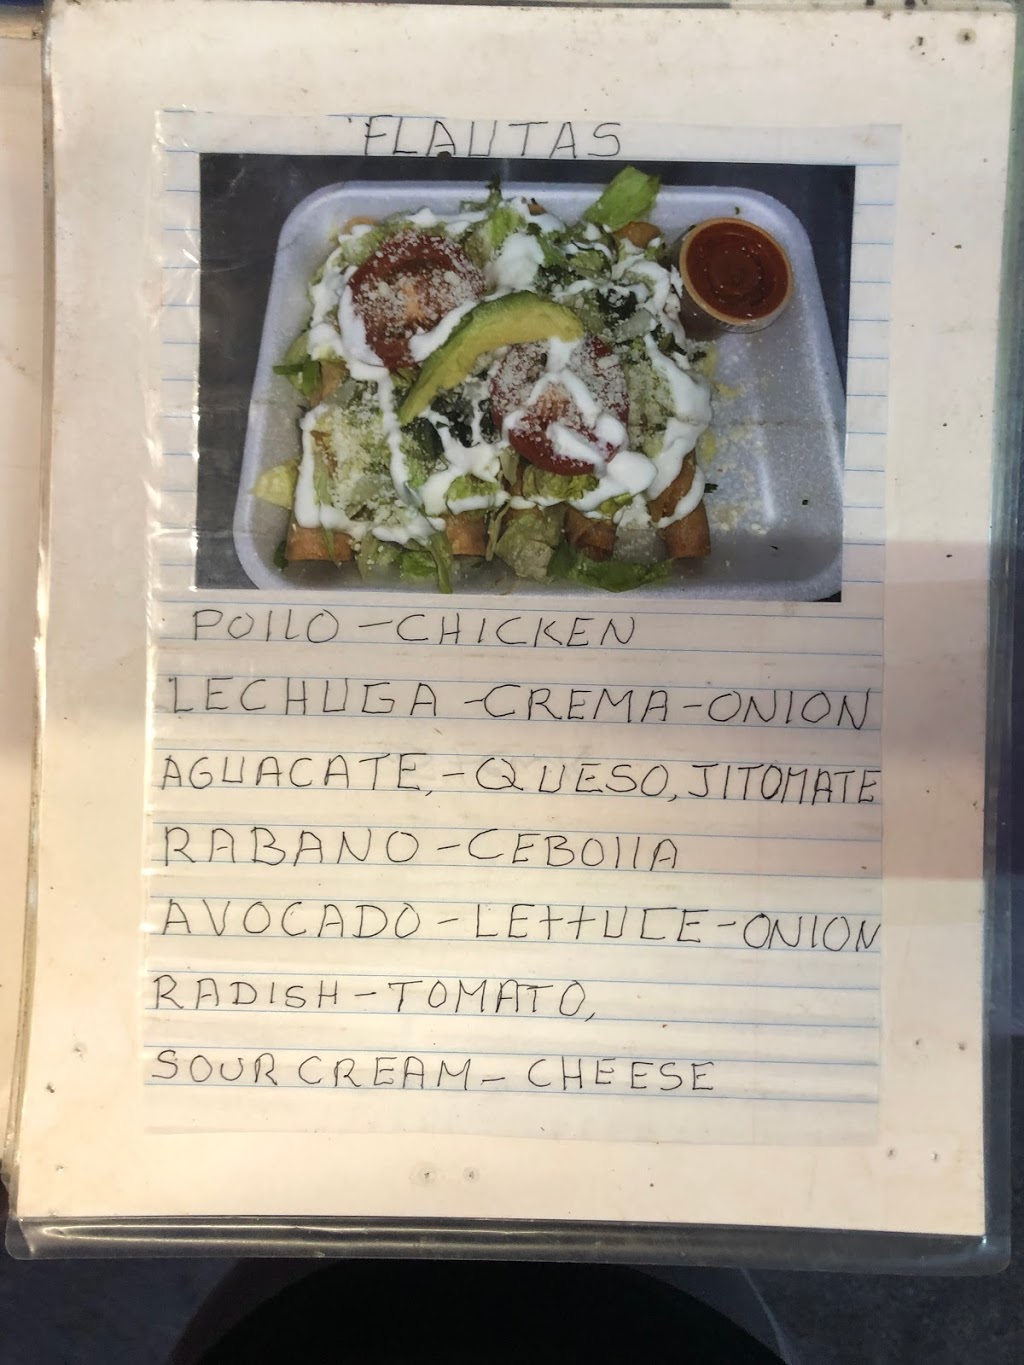 FLAUTAS
POllO - CHICKEN
LECHUGA - CREMA - ONION
AGUACATE, - QUESO, JITOMATE
RABANO - CEBOllA
AVOCADO - LEttUCE - ONION
RADISH - TOMATO,
SOUR CREAM - CHEESE